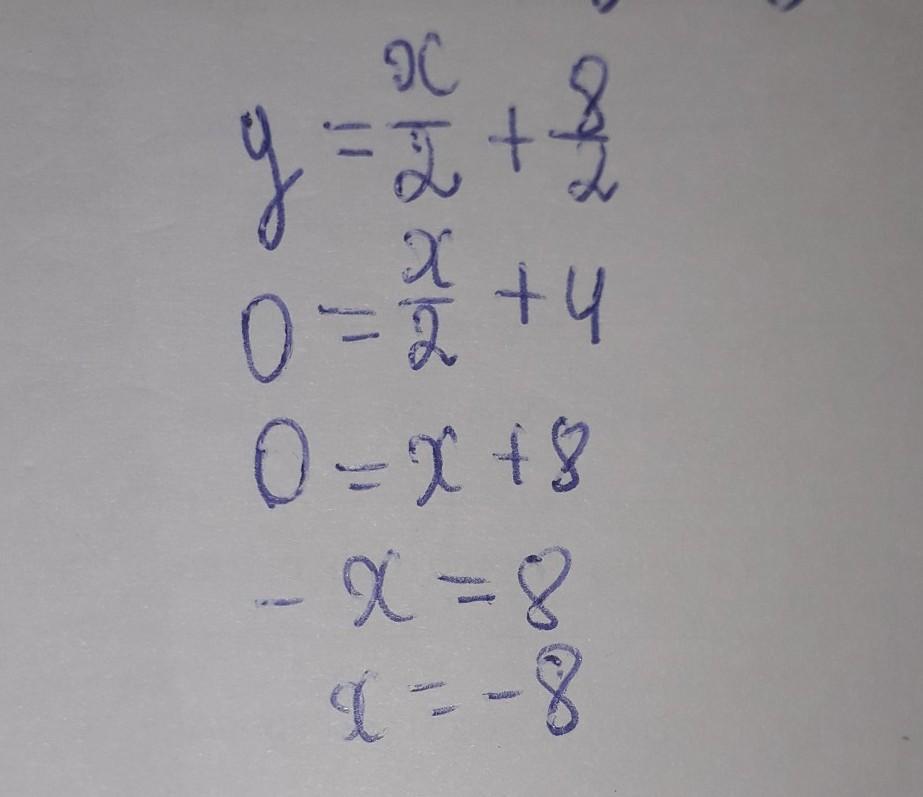 y = x/2 + 8/2
0 = x/2 + 4
0 = x + 8
- x = 8
x = -8